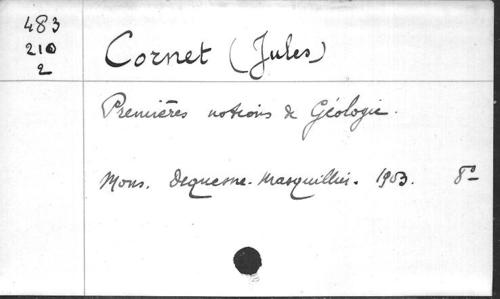 483
210
2
Cornet (Jules)
Premières notions de Géologie.
Mons. Dequesne-Masquillier. 1903. 8°